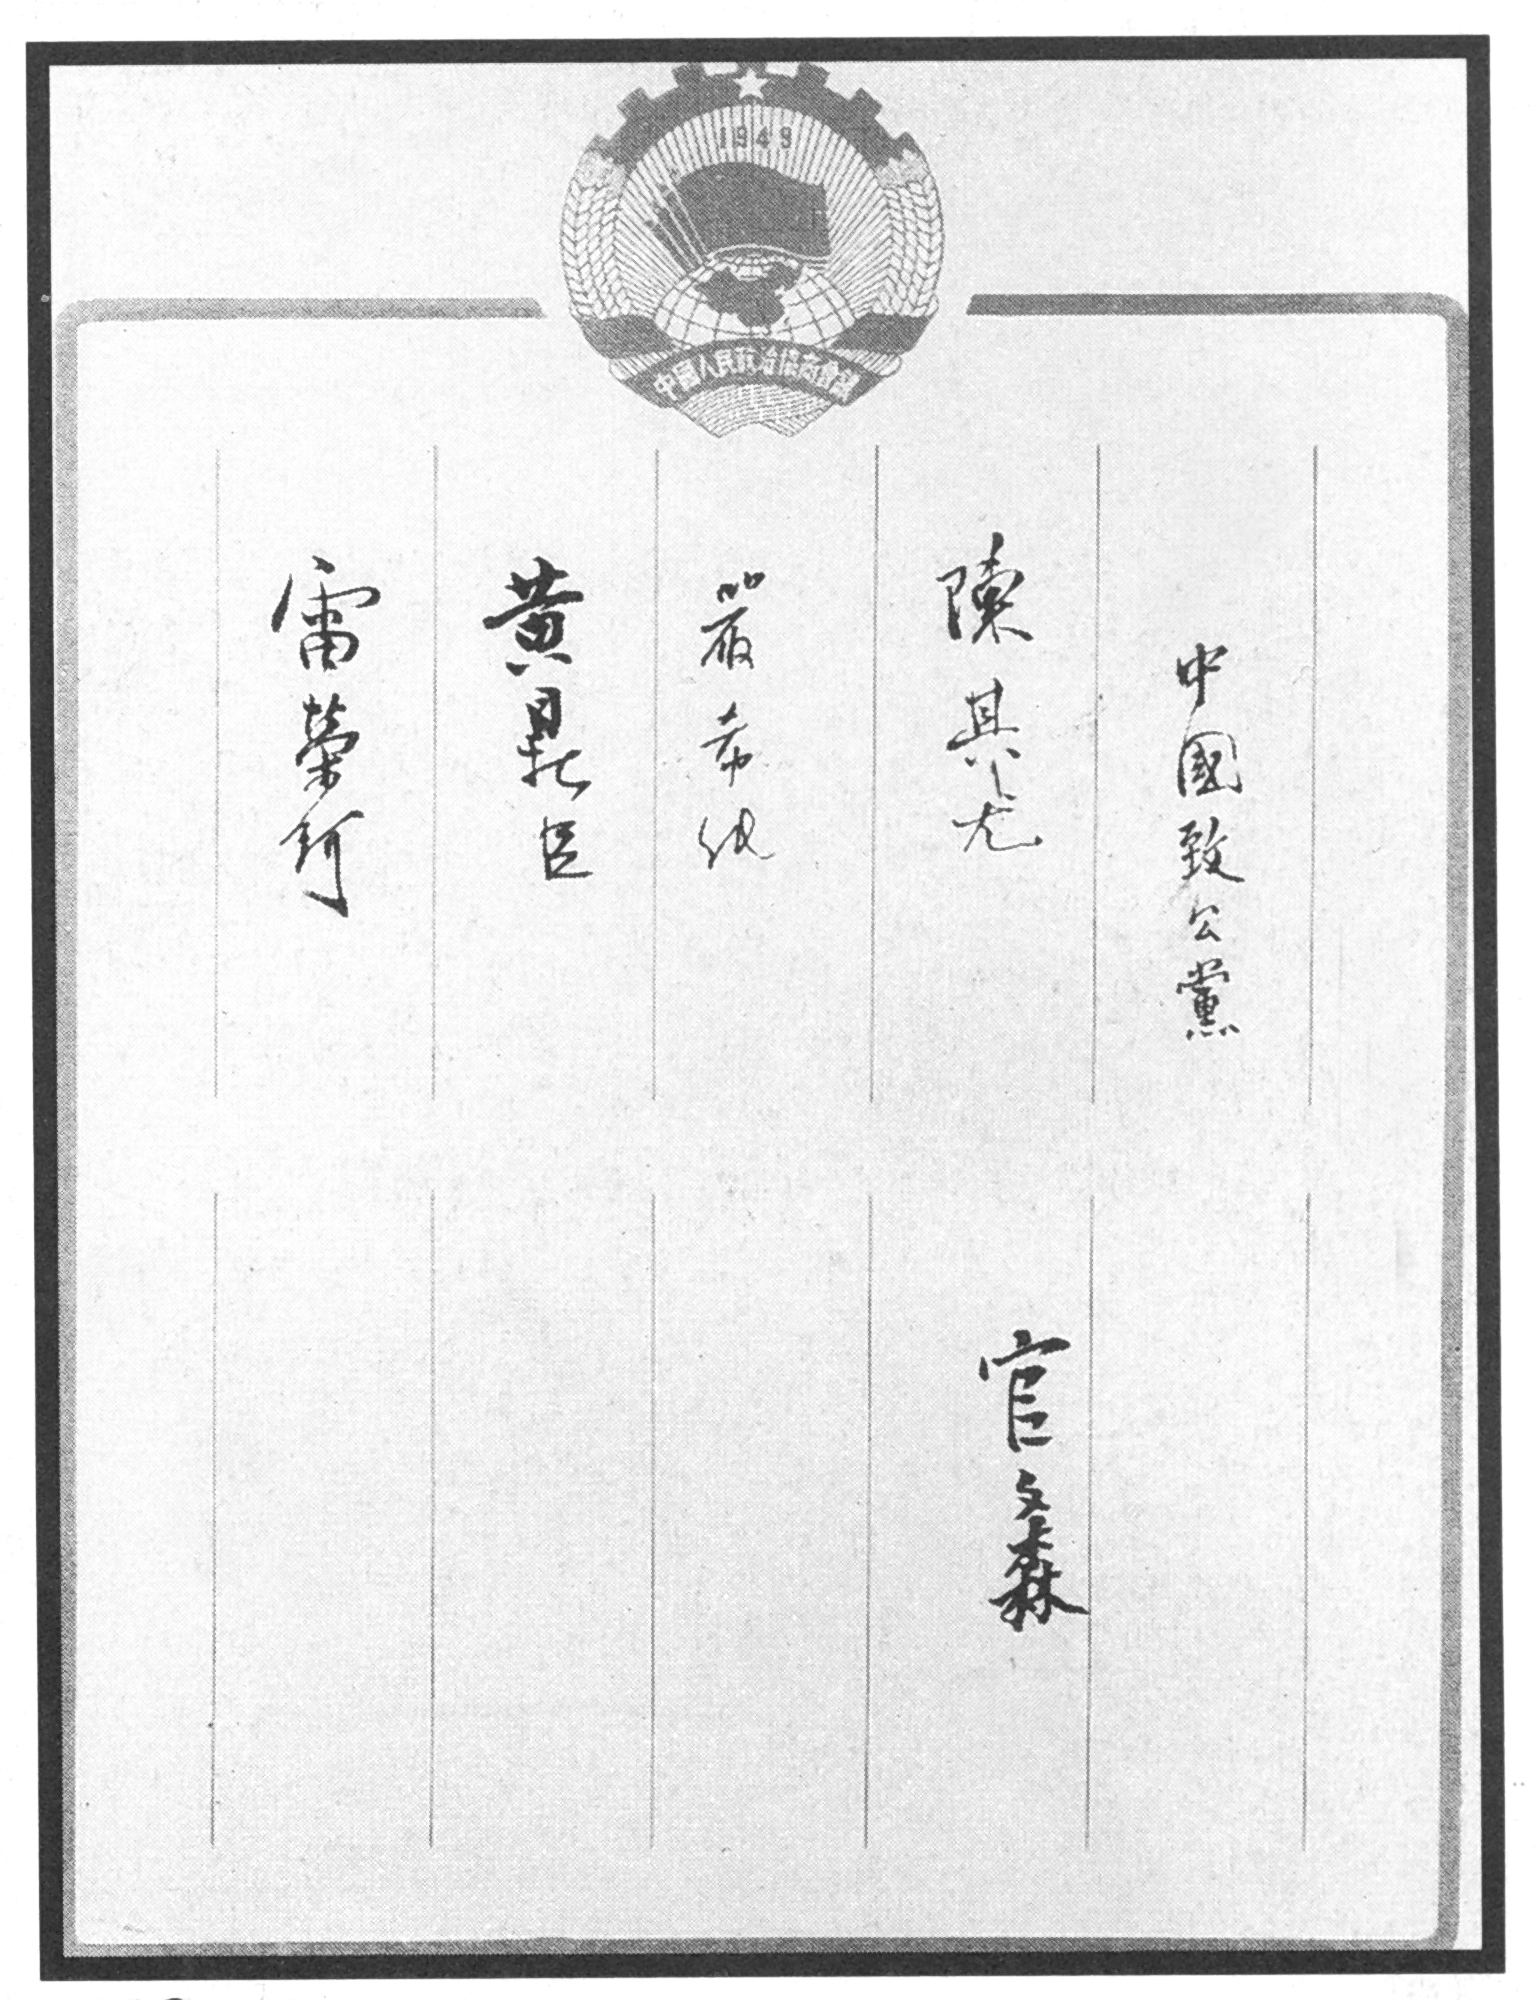 1949
中國人民政治協商會議
中國致公黨
陳其尤
嚴希純
黃鼎臣
雷榮珂
官文森